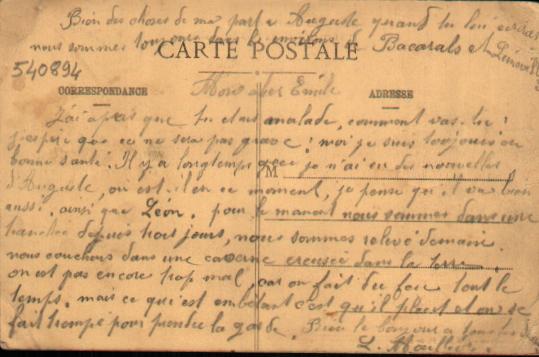 Bien des choses de ma part a Auguste quand tu lui ecriras
nous sommes toujours dans les environs de Bacarals et
CARTE POSTALE
540894
Mon cher Emile
CORRESPONDANCE
ADRESSE
J'ai apris que tu etais malade, comment vas-tu?
j'espère que ce ne sera pas grave; moi je suis toujours en
bonne santé. Il y a longtemps que je n'ai eu des nouvelles
M
d'Auguste, ou est il en ce moment, je pense qu'il va bien
aussi. ainsi que Léon. pour le manoment nous sommes dans une
tranchée depuis trois jours, nous sommes relevé demain.
nous couchons dans une caverne creusée dans la terre.
on est pas encore trop mal, car on fait du feu tout le
temps. mais ce qui est embêtant c'est qu'il pleut et on se
fait trempé pour prendre la garde. Bien le bonjour a tous
L.